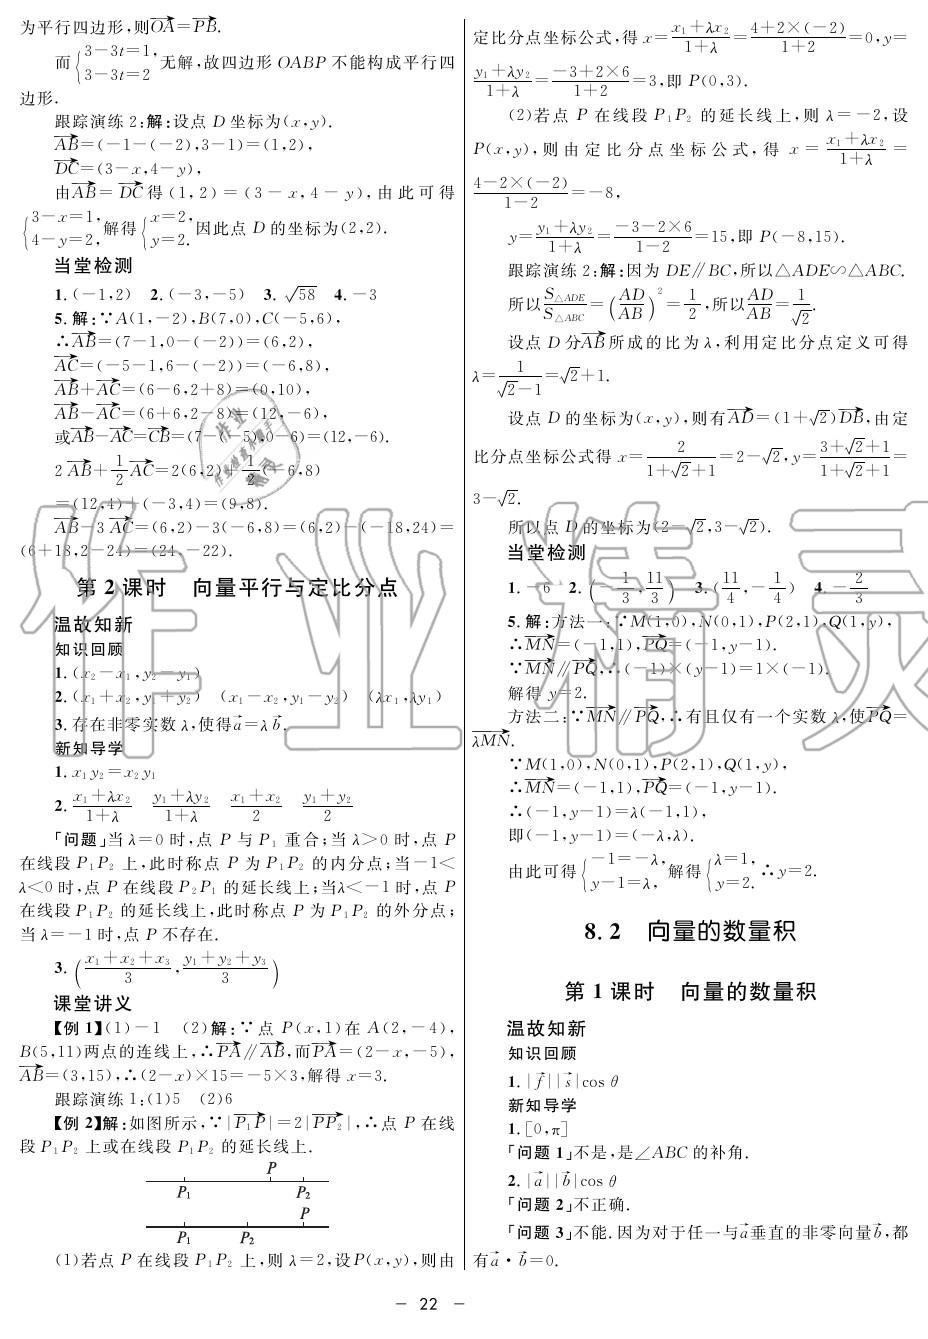 为平行四边形,则OA=PB.
而{3-3t=1, 3-3t=2 无解,故四边形 OABP 不能构成平行四
边形.
跟踪演练 2:解:设点 D 坐标为(x,y).
AB=(-1-(-2),3-1)=(1,2),
DC=(3-x,4-y),
由AB=DC得(1,2)=(3-x,4-y),由此可得
{3-x=1, 4-y=2, 解得{x=2, y=2. 因此点 D 的坐标为(2,2).
当堂检测
1.(-1,2) 2.(-3,-5) 3. √58 4.-3
5.解:∵A(1,-2),B(7,0),C(-5,6),
∴AB=(7-1,0-(-2))=(6,2),
AC=(-5-1,6-(-2))=(-6,8),
AB+AC=(6-6,2+8)=(0,10),
AB-AC=(6+6,2-8)=(12,-6),
或AB-AC=CB=(7-(-5),0-6)=(12,-6).
2AB+1/2AC=2(6,2)+1/2(-6,8)
=(12,4)+(-3,4)=(9,8).
AB-3AC=(6,2)-3(-6,8)=(6,2)-(-18,24)=
(6+18,2-24)=(24,-22).
第 2 课时 向量平行与定比分点
温故知新
知识回顾
1.(x₂-x₁,y₂-y₁)
2.(x₁+x₂,y₁+y₂) (x₁-x₂,y₁-y₂) (λx₁,λy₁)
3.存在非零实数 λ,使得a=λb.
新知导学
1.x₁y₂=x₂y₁
2. (x₁+λx₂)/(1+λ) (y₁+λy₂)/(1+λ) (x₁+x₂)/2 (y₁+y₂)/2
「问题」当 λ=0 时,点 P 与 P₁ 重合;当 λ>0 时,点 P
在线段 P₁P₂ 上,此时称点 P 为 P₁P₂ 的内分点;当-1<
λ<0 时,点 P 在线段 P₂P₁ 的延长线上;当λ<-1 时,点 P
在线段 P₁P₂ 的延长线上,此时称点 P 为 P₁P₂ 的外分点;
当 λ=-1 时,点 P 不存在.
3. ((x₁+x₂+x₃)/3,(y₁+y₂+y₃)/3)
课堂讲义
【例 1】(1)-1 (2)解:∵点 P(x,1)在 A(2,-4),
B(5,11)两点的连线上,∴PA∥AB,而PA=(2-x,-5),
AB=(3,15),∴(2-x)×15=-5×3,解得 x=3.
跟踪演练 1:(1)5 (2)6
【例 2】解:如图所示,∵|P₁P|=2|PP₂|,∴点 P 在线
段 P₁P₂ 上或在线段 P₁P₂ 的延长线上.
P
P₁ P₂
P
P₁ P₂
(1)若点 P 在线段 P₁P₂ 上,则 λ=2,设P(x,y),则由
定比分点坐标公式,得 x=(x₁+λx₂)/(1+λ)=(4+2×(-2))/(1+2)=0,y=
(y₁+λy₂)/(1+λ)=(-3+2×6)/(1+2)=3,即 P(0,3).
(2)若点 P 在线段 P₁P₂ 的延长线上,则 λ=-2,设
P(x,y),则由定比分点坐标公式,得 x=(x₁+λx₂)/(1+λ)=
(4-2×(-2))/(1-2)=-8,
y=(y₁+λy₂)/(1+λ)=(-3-2×6)/(1-2)=15,即 P(-8,15).
跟踪演练 2:解:因为 DE∥BC,所以△ADE∽△ABC.
所以S△ADE/S△ABC=(AD/AB)²=1/2,所以AD/AB=1/√2.
设点 D 分AB所成的比为 λ,利用定比分点定义可得
λ=1/(√2-1)=√2+1.
设点 D 的坐标为(x,y),则有AD=(1+√2)DB,由定
比分点坐标公式得 x=2/(1+√2+1)=2-√2,y=(3+√2+1)/(1+√2+1)=
3-√2.
所以点 D 的坐标为(2-√2,3-√2).
当堂检测
1.-6 2.(-1/3,11/3) 3.(11/4,-1/4) 4.-2/3
5.解:方法一:∵M(1,0),N(0,1),P(2,1),Q(1,y),
∴MN=(-1,1),PQ=(-1,y-1).
∵MN∥PQ,∴(-1)×(y-1)=1×(-1).
解得 y=2.
方法二:∵MN∥PQ,∴有且仅有一个实数 λ,使PQ=
λMN.
∵M(1,0),N(0,1),P(2,1),Q(1,y),
∴MN=(-1,1),PQ=(-1,y-1).
∴(-1,y-1)=λ(-1,1),
即(-1,y-1)=(-λ,λ).
由此可得{-1=-λ, y-1=λ, 解得{λ=1, y=2. ∴y=2.
8.2 向量的数量积
第 1 课时 向量的数量积
温故知新
知识回顾
1.|f||s|cos θ
新知导学
1.[0,π]
「问题 1」不是,是∠ABC 的补角.
2.|a||b|cos θ
「问题 2」不正确.
「问题 3」不能.因为对于任一与a垂直的非零向量b,都
有a·b=0.
- 22 -
作业精灵